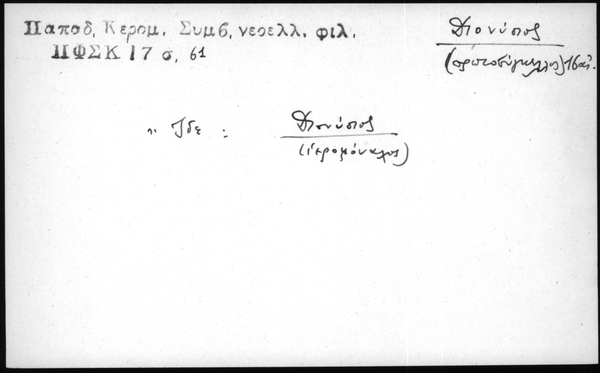 Παπαδ. Κεραμ. Συμβ. νεοελλ. φιλ.
ΠΦΣΚ 17 σ. 61
Διονύσιος
(πρωτοσύγκελλος) 16 αἰ.
Ἴδε : Διονύσιος
(ἱερομόναχος)